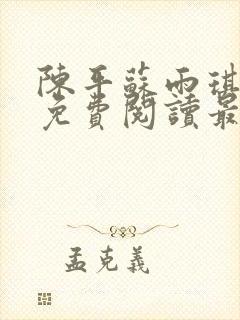 陳平蘇雨琪
免費閱讀最
孟克義